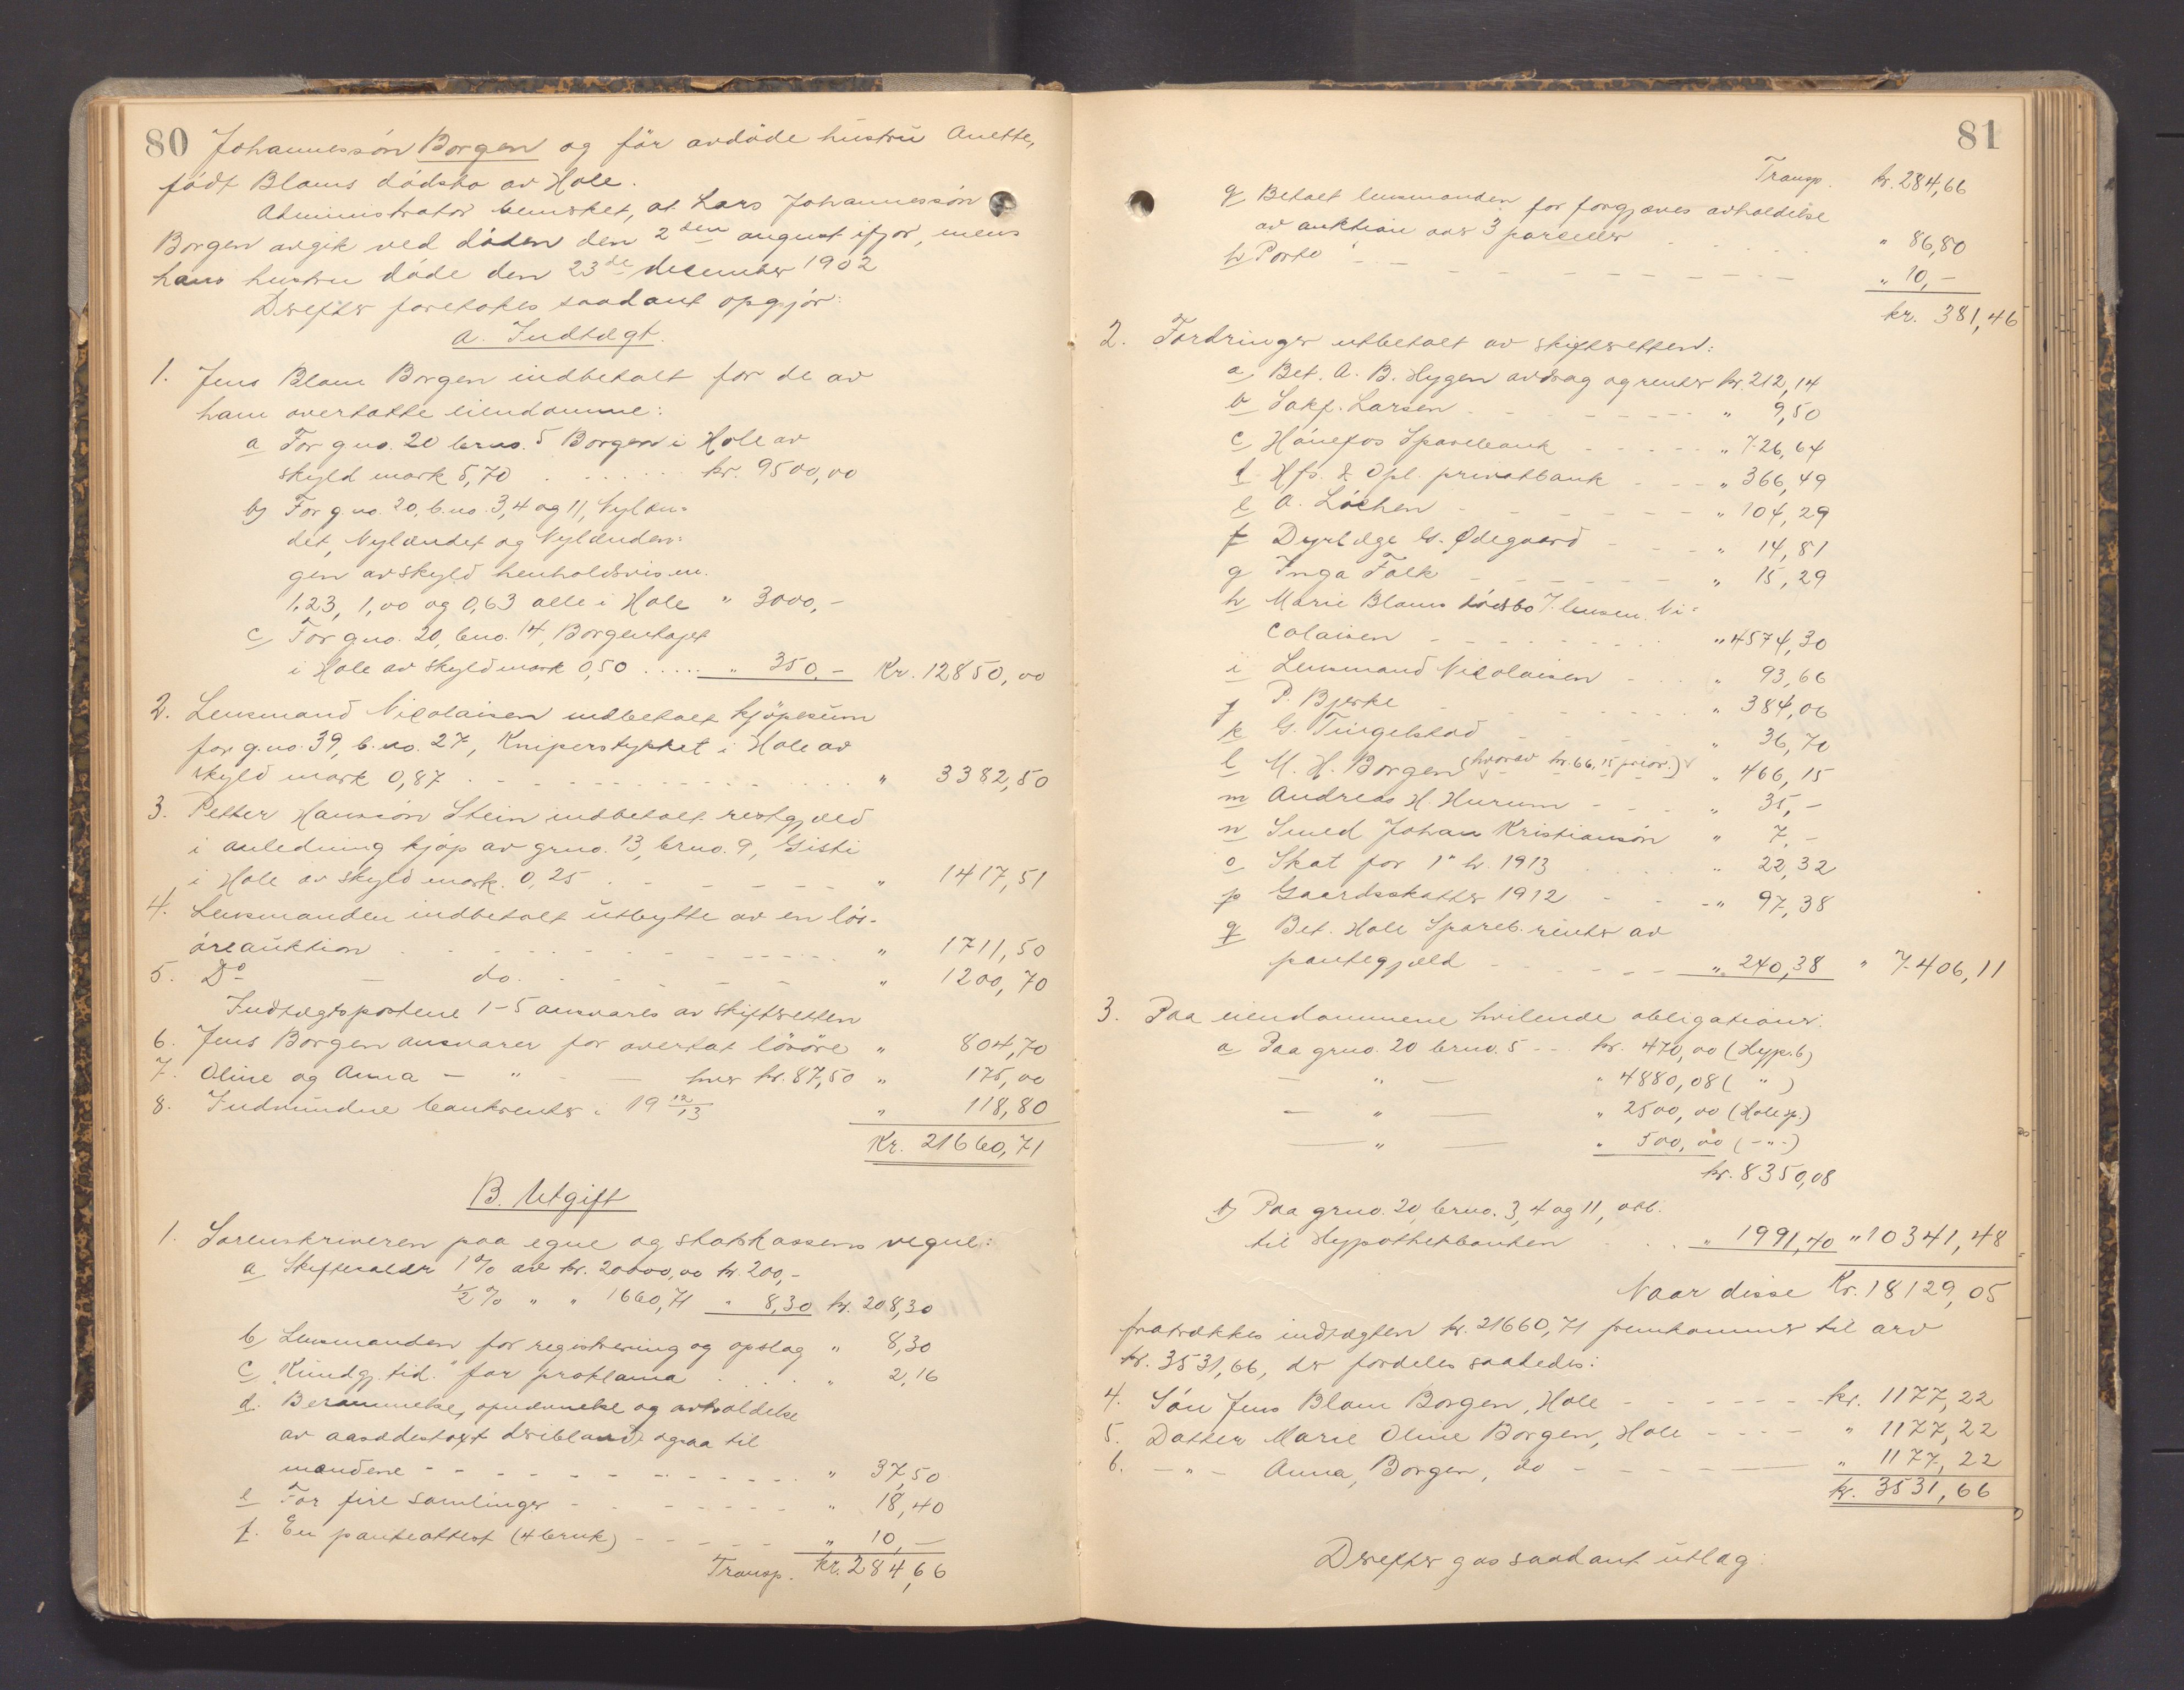 80 Johannessön Borgen og før avdøde hustru Anette,
født Blams dødsbo av Hole.
Administrator bemerket, at Lars Johannessön
Borgen avgik ved døden den 2den august ifjor, mens
hans hustru døde den 23de december 1902
Derefter foretokes saadant opgjør:
A. Indtægt.
1. Jens Blam Borgen indbetalt for de av
ham overtatte eiendomme:
a For gno. 20 brno. 5 Borgen i Hole av
skyld mark 5,70 . . . . . . kr. 9500,00
b) For g.no. 20, b.no. 3, 4 og 11, Nylæn-
det, Nylændet og Nylænden-
gen av skyld henholdsvis m.
1,23, 1,00 og 0,63 alle i Hole " 3000,-
c) For gno. 20, bno. 14, Borgenhaget
i Hole av skyldmark 0,50 . . . . . " 350.- Kr. 12850,00
2. Lensmand Nicolaisen indbetalt kjöpesum
for g.no. 39, b.no. 27, Kniperstykket i Hole av
skyld mark 0,87 . . . . . . " 3382,50
3. Petter Hansön Stein indbetalt restgjæld
i anledning kjøp av grno. 13, brno. 9, Gisti
i Hole av skyld mark. 0,25 . - - - - " 1417,51
4. Lensmanden indbetalt utbytte av en løs-
øreauktion . - - - - - " 1711,50
5. Do - do. - - - - " 1200,70
Indtægtsposterne 1-5 ansvares av skifteretten
6. Jens Borgen ansvarer for overtat lösöre " 804,70
7. Oline og Anna - " - - hver kr. 87,50 " 175,00
8. Indvundne bankrenter i 19 12/13 " 118,80
Kr. 21660,71
B. Utgift
1. Sorenskriveren paa egne og statskassens vegne:
a Skiftesalær 1% av kr. 20000,00 kr. 200,-
½% " " 1660,71 " 8,30 kr. 208,30
b Lensmanden for registrering og opslag " 8,30
c "Kundgj. tid." for proklama . . . . " 2,16
d. Berammelse, opnævnelse og avholdelse
av aasædestaxt deriblandt ogsaa til
mændene - - - - - - " 37,50
e For fire samlinger - - - - - " 18,40
f. En panteattest (4 bruk) - - - - " 10,-
Transp. kr. 284,66
81
Transp. kr. 284,66
g Betalt lensmanden for forgjæves avholdelse
av auktion over 3 parceller - - - - " 86,80
h Porto - - - - - - " 10,-
kr. 381,46
2. Fordringer utbetalt av skifteretten:
a Bet. A. B. Hygen avdrag og renter kr. 212,14
b Sakf. Larsen - - - - - " 9,50
c Hönefos Sparebank - - - - - " 726,64
d Hfs. & Opl. privatbank - - - " 366,49
e A. Löchen - - - - - " 104,29
f Dyrlæge G. Ødegaard - - - " 14,81
g Inga Falk - - - - - " 15,29
h Marie Blams dødsbo v. lensm. Ni-
colaisen - - - - - " 4574,30
i Lensmand Nicolaisen - . . " 93,66
j P. Bjerke - - - - - " 384,06
k G. Tingelstad - - - - " 36,70
l M. H. Borgen (hvorav kr. 66,15 prior.) " 466,15
m Andreas H. Hurum - - - " 35,-
n Smed Johan Kristiansön " 7,-
o Skat for 1ste h. 1913 . . . . " 22,32
p Gaardsskatter 1912 - - - " 97,38
q Bet. Hole Spareb. renter av
pantegjæld - - - - - " 240,38 " 7406,11
3. Paa eiendommene hvilende obligationer:
a Paa grno. 20 brno. 5 - - kr. 470,00 (Hyp.b)
- " - " 4880,08 ( " )
- " - " 2500,00 (Hole sp.)
- " - " 500,00 (-"-)
kr. 8350,08
b) Paa grno. 20, brno. 3, 4 og 11, obl.
til Hypothekbanken . . . " 1991,40 " 10341,48
Naar disse Kr. 18129,05
fratrækkes indtægten kr. 21660,71 fremkommer til arv
kr. 3531,66, der fordeles saaledes:
4. Sön Jens Blam Borgen, Hole - - - - - kr. 1177,22
5. Datter Marie Oline Borgen, Hole - - - - " 1177,22
6. - " - Anna Borgen, do - - - - " 1177,22
kr. 3531,66
Derefter gas saadant utlæg: